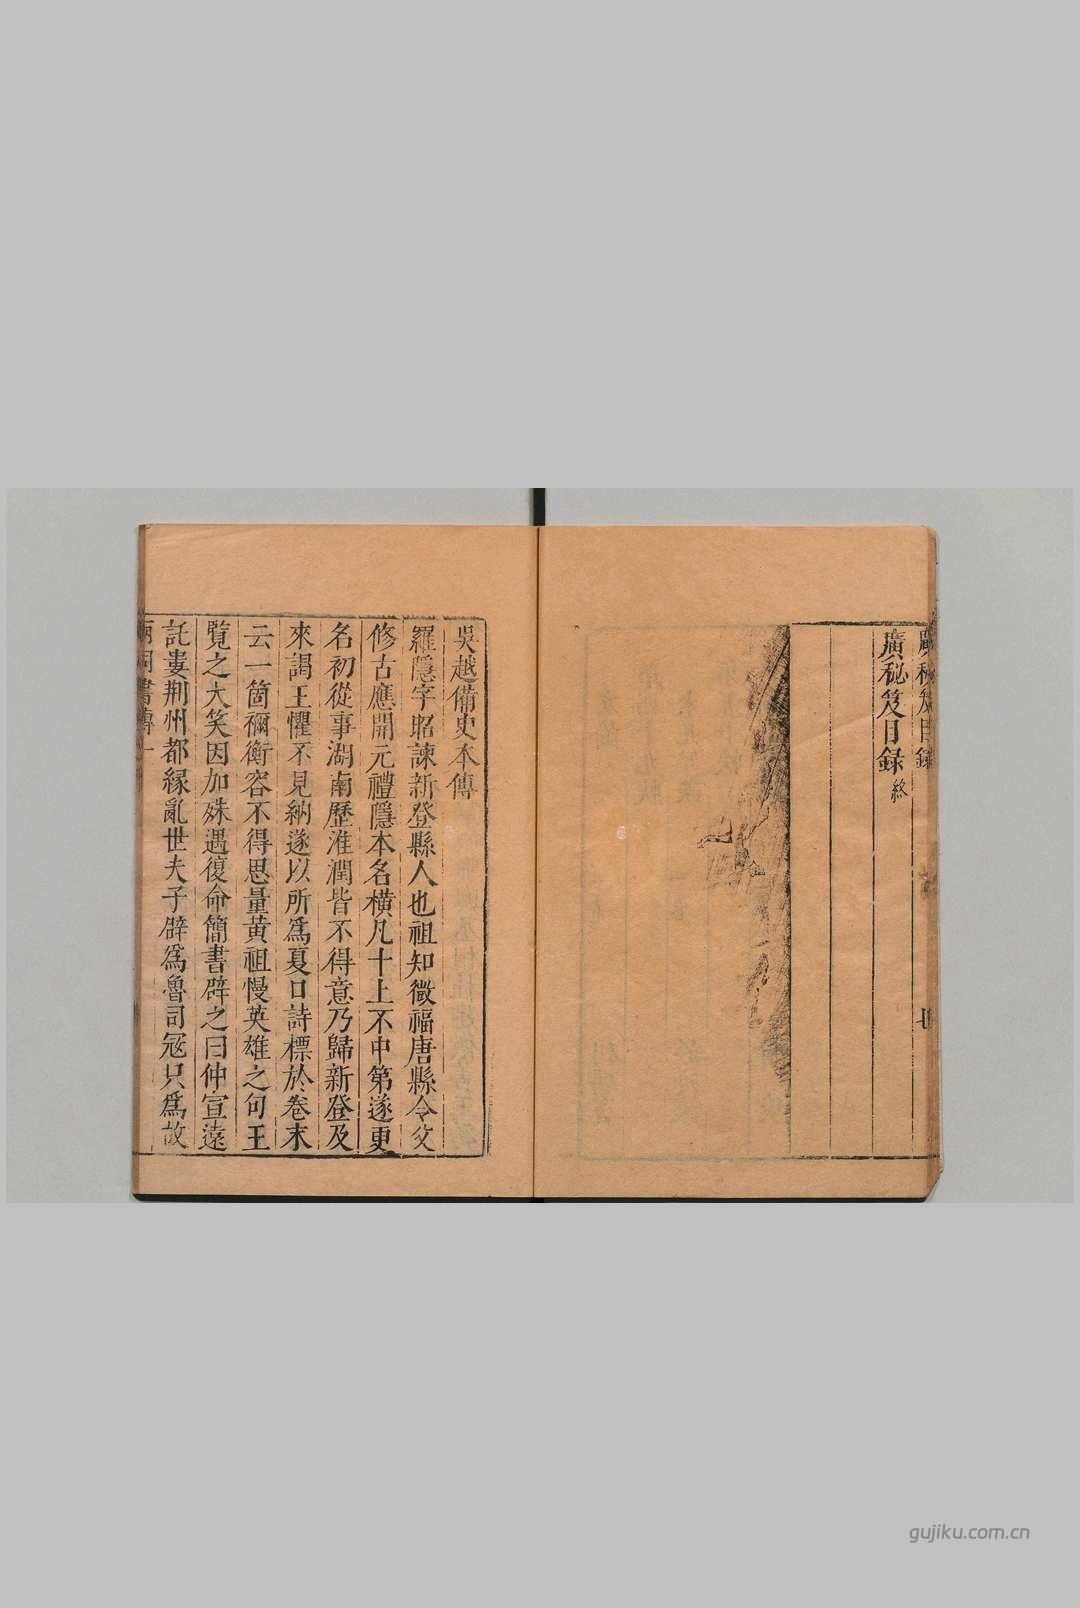 廣秘笈目録
廣秘笈目録終
吳越備史本傳
羅隱字昭諫新登縣人也祖知微福唐縣令父
修古應開元禮隱本名橫凡十上不中第遂更
名初從事湖南歷淮潤皆不得意乃歸新登及
來謁王懼不見納遂以所爲夏口詩標於卷末
云一箇禰衡容不得思量黄祖慢英雄之句王
覽之大笑因加殊遇復命簡書辟之曰仲宣遠
託婁荆州都緣亂世夫子辟爲魯司冦只爲故
兩同書傳一
gujiku.com.cn